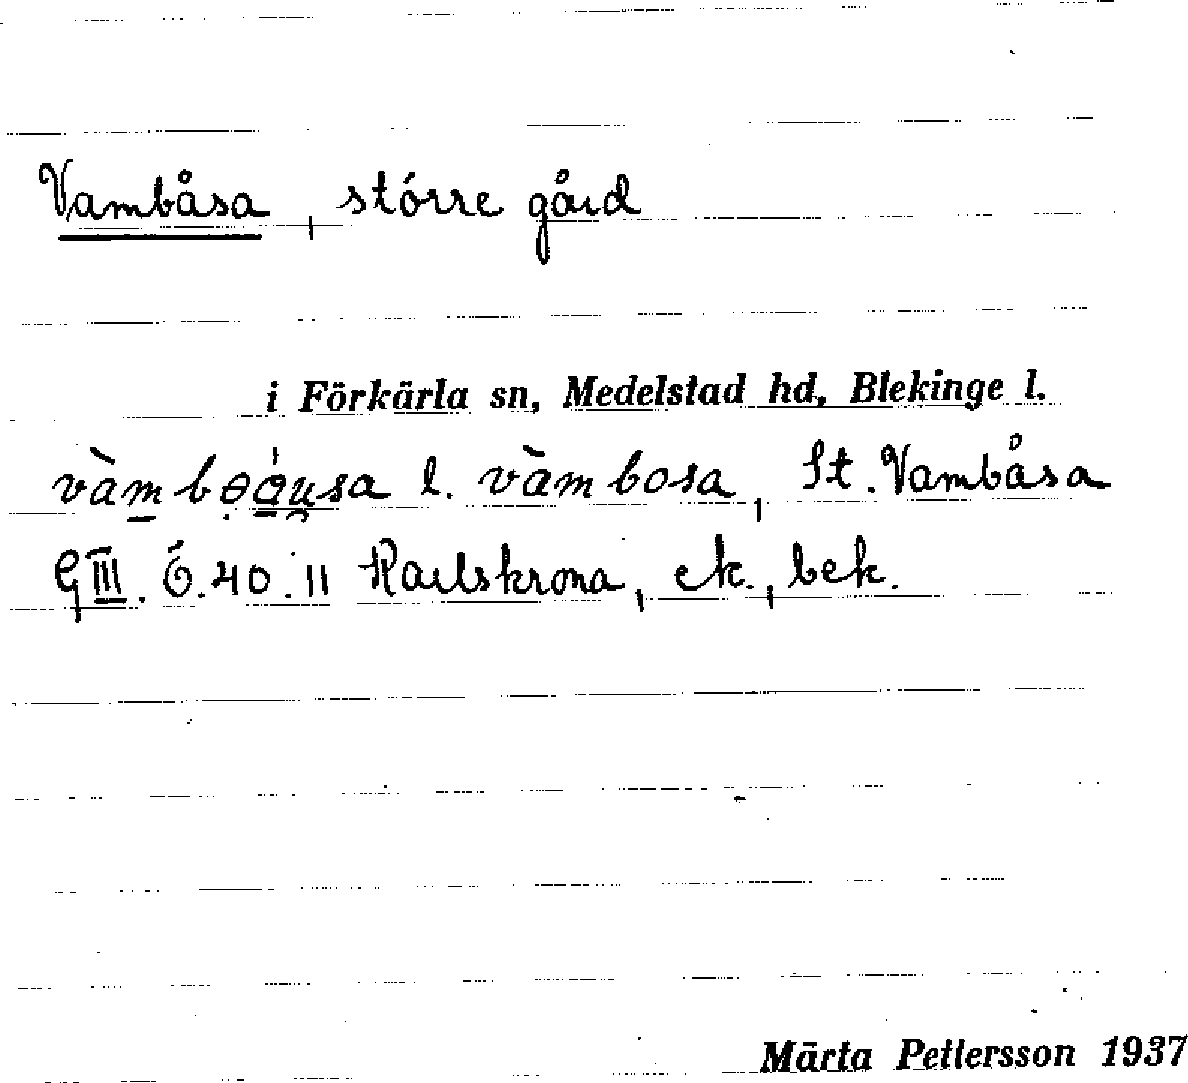 Vambåsa, större gård
i Förkärla sn, Medelstad hd, Blekinge l.
l. vàmbosa, St. Vambåsa
GIII. Ö. 40. 11 Karlskrona, ek., bek.
Märta Pettersson 1937